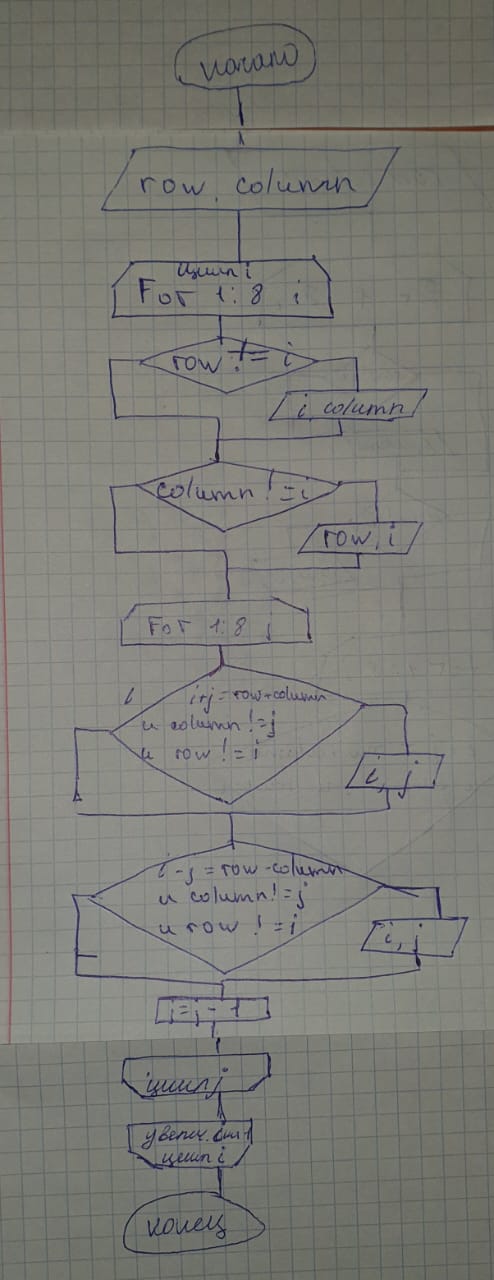 начало
row, column
цикл i
For 1:8 i
row != i
i, column
column != i
row, i
For 1:8 j
i
i+j = row+column
и column != j
и row != i
i, j
i-j = row-column
и column != j
и row != i
i, j
j = j - 1
цикл j
цикл i
конец